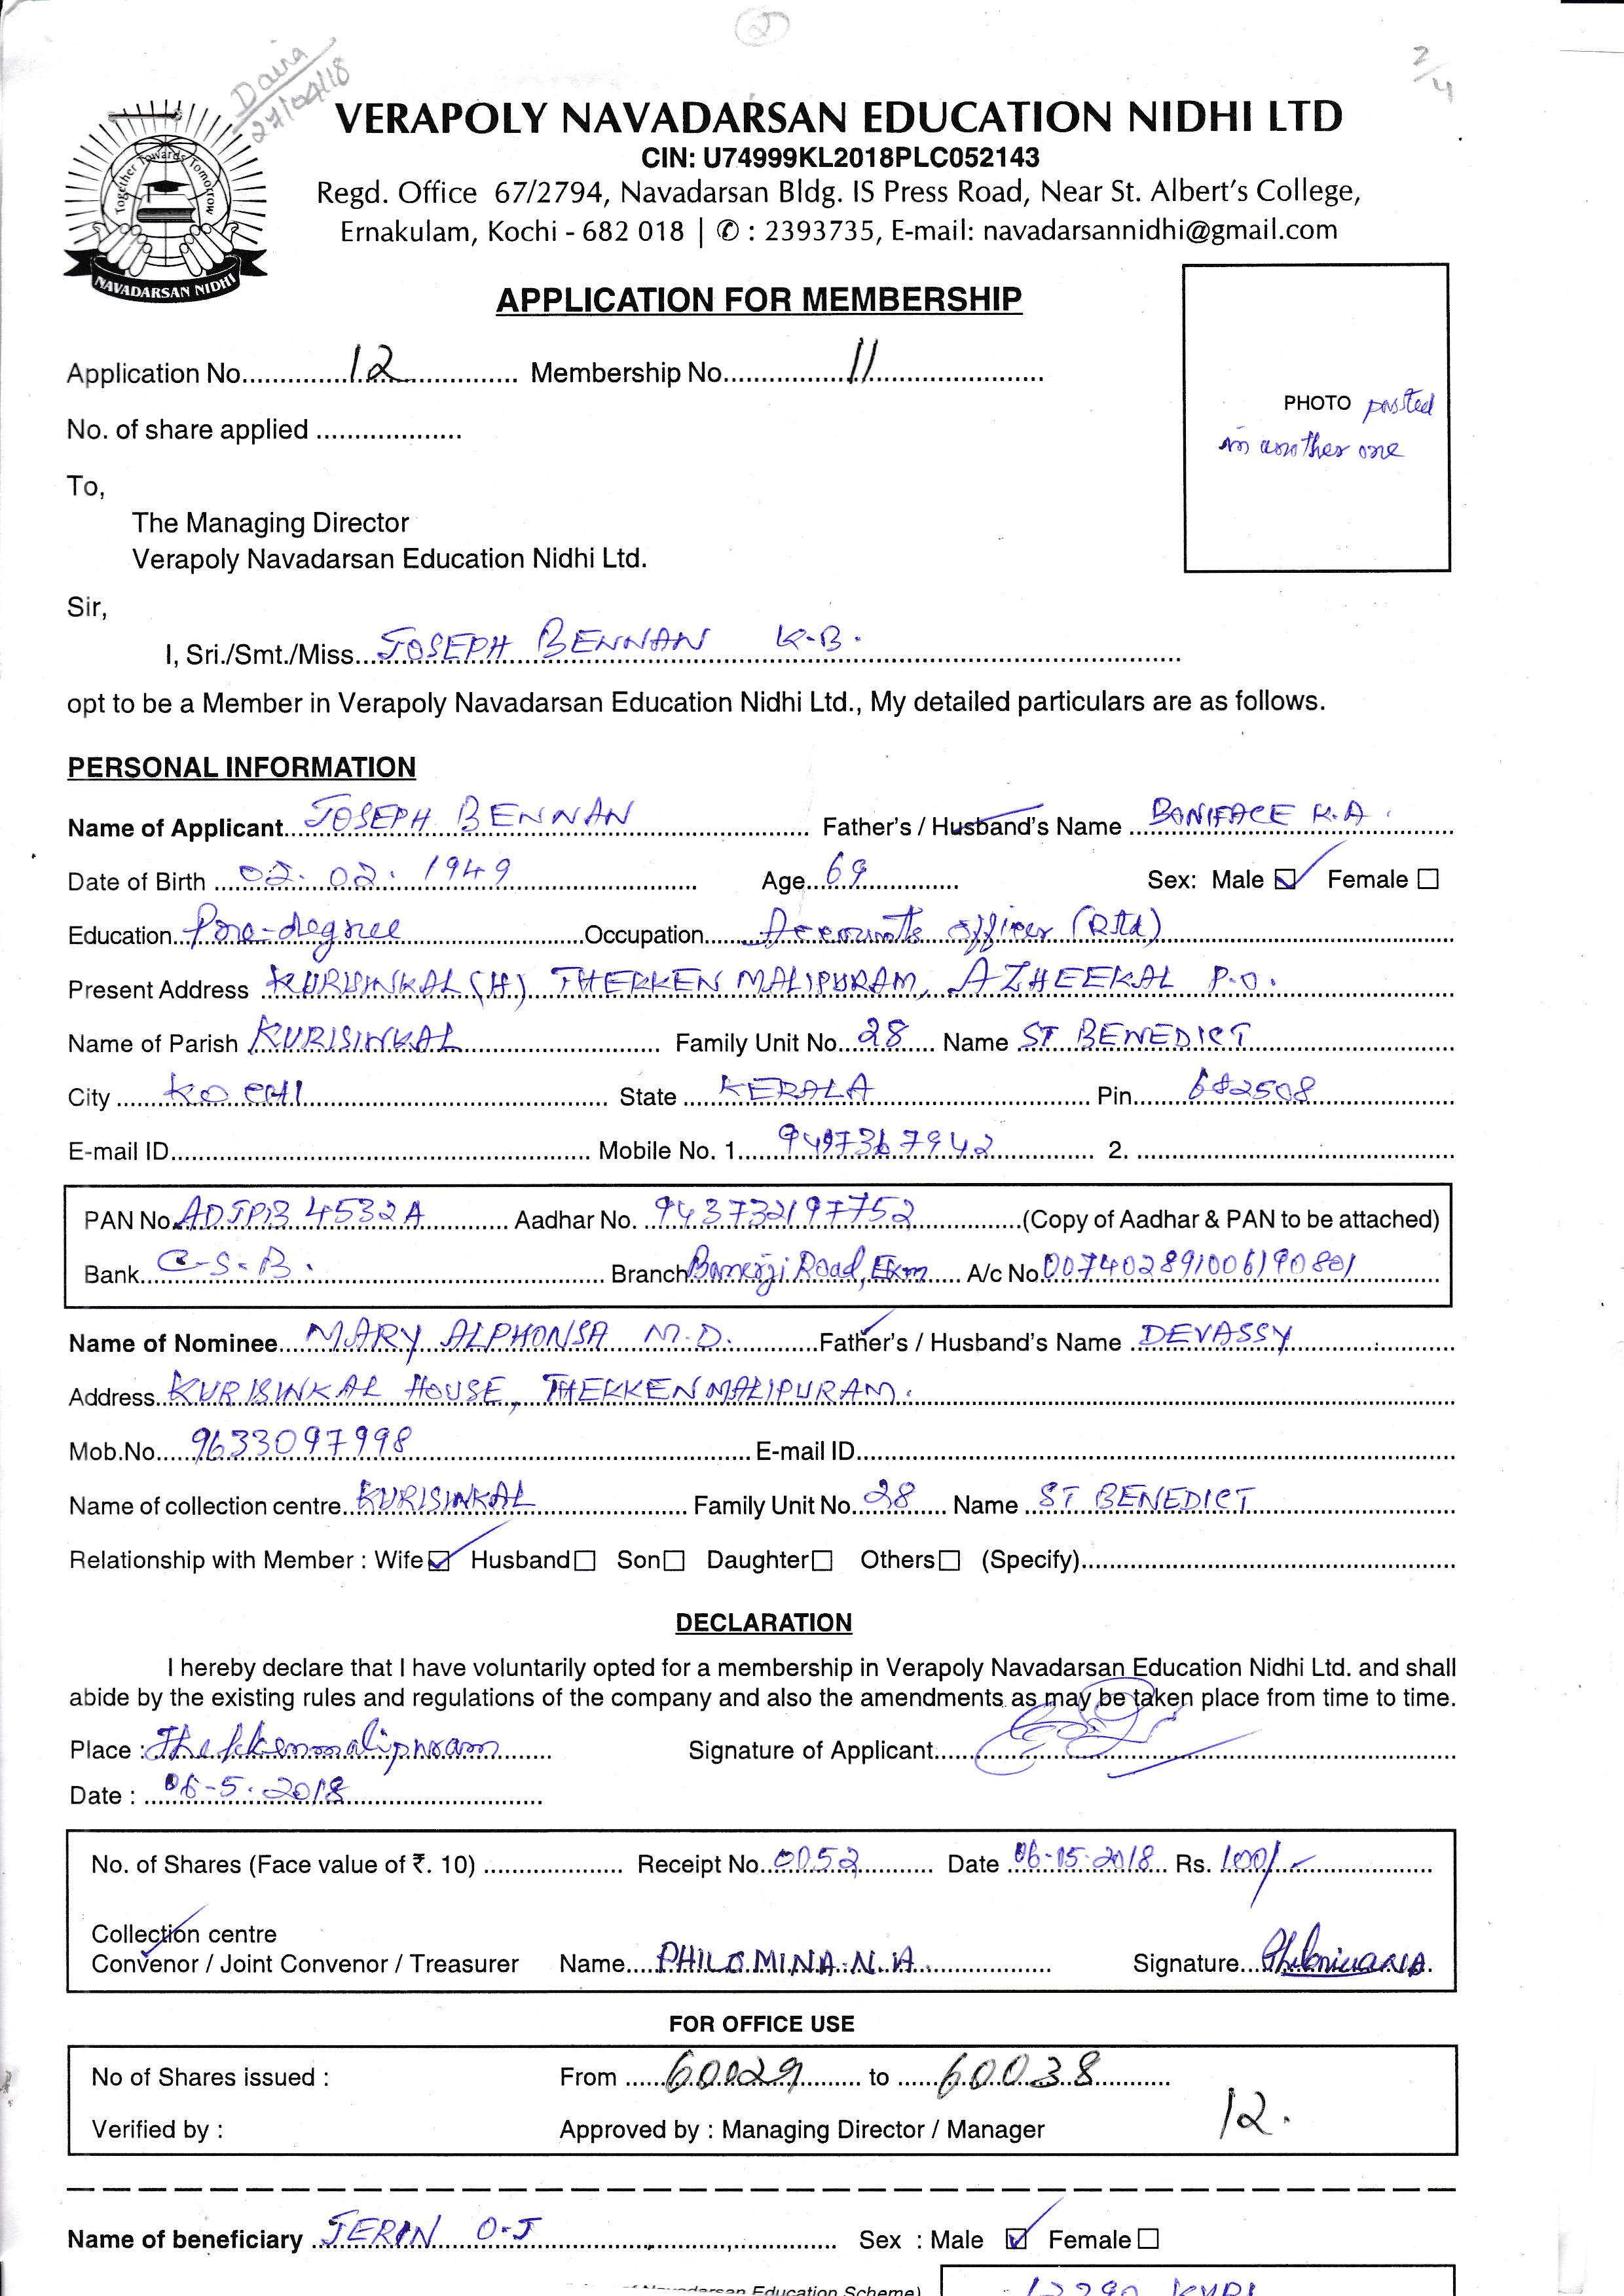 2/4
VERAPOLY NAVADARSAN EDUCATION NIDHI LTD
CIN: U74999KL2018PLC052143
Regd. Office 67/2794, Navadarsan Bldg. IS Press Road, Near St. Albert's College,
Ernakulam, Kochi - 682 018 | ✆ : 2393735, E-mail: navadarsannidhi@gmail.com
Together Towards Tomorrow
NAVADARSAN NIDHI
27/04/18
APPLICATION FOR MEMBERSHIP
Application No. 12 Membership No. 11
PHOTO pasted
in another one
No. of share applied
To,
The Managing Director
Verapoly Navadarsan Education Nidhi Ltd.
Sir,
I, Sri./Smt./Miss. JOSEPH BENNAN K.B.
opt to be a Member in Verapoly Navadarsan Education Nidhi Ltd., My detailed particulars are as follows.
PERSONAL INFORMATION
Name of Applicant JOSEPH BENNAN Father's / Husband's Name BONIFACE K.A.
Date of Birth 02. 02. 1949 Age 69 Sex: Male ☑ Female ☐
Education Pre-degree Occupation Accounts officer (Rtd)
Present Address KURISINKAL (H) THEKKEN MALIPURAM, AZHEEKAL P.O.
Name of Parish KURISINKAL Family Unit No. 28 Name ST BENEDICT
City KOCHI State KERALA Pin 682508
E-mail ID Mobile No. 1 9497367942 2.
PAN No. ADJPB 4532A Aadhar No. 943732197752 (Copy of Aadhar & PAN to be attached)
Bank C.S.B. Branch Banerji Road, Ekm A/c No 007402891006190801
Name of Nominee MARY ALPHONSA M.D. Father's / Husband's Name DEVASSY
Address KURISINKAL HOUSE, THEKKENMALIPURAM.
Mob.No. 9633097998 E-mail ID
Name of collection centre. KURISINKAL Family Unit No. 28 Name ST BENEDICT
Relationship with Member : Wife ☑ Husband ☐ Son ☐ Daughter ☐ Others ☐ (Specify)
DECLARATION
I hereby declare that I have voluntarily opted for a membership in Verapoly Navadarsan Education Nidhi Ltd. and shall
abide by the existing rules and regulations of the company and also the amendments as may be taken place from time to time.
Place : Thekkenmalipuram Signature of Applicant
Date : 06-5-2018
No. of Shares (Face value of ₹. 10) Receipt No. 0052 Date 06-05-2018 Rs. 100/-
Collection centre
Convenor / Joint Convenor / Treasurer Name PHILOMINA N.A. Signature Philomina N.A
FOR OFFICE USE
No of Shares issued : From 60029 to 60038
Verified by : Approved by : Managing Director / Manager 12.
Name of beneficiary JERIN O.J Sex : Male ☑ Female ☐
Navadarsan Education Scheme)